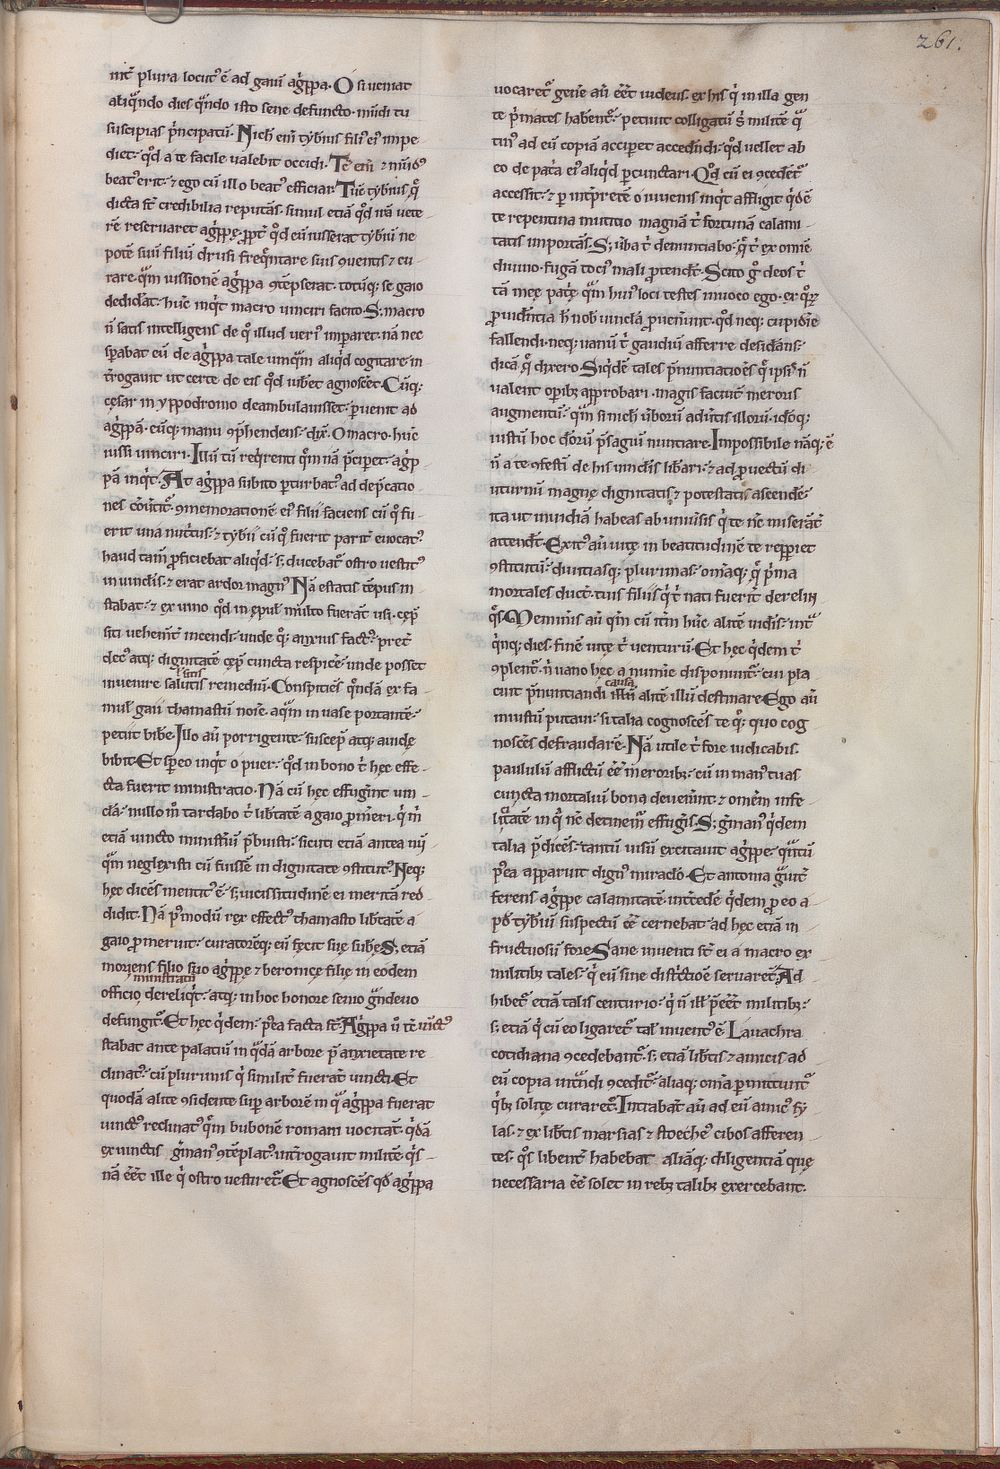 261.
int̄ plura locut᾽ ē ad gaiū agͥppa. O si ueniat
aliqͣndo dies qͣndo isto sene defuncto. mūdi tu
suscipias pͥncipatū. Nich̄ enī tyberius fili᾽ ei᾽ impe
diet. qͦd a te facile ualebit occidi. Tē enī ⁊ mūd᾽
beat᾽ erit. ⁊ ego cū illo beat᾽ efficiar. Tūc tyberius. q̄
dicta sꞇ̄ credibilia reputās. simul etiā qͦd irā uete
rē reseruaret agͥppę. ꝓpt̄ qͦd eū iusserat tyberiū ne
potē suū filiū drusi freqͥntare suis ꝯuentis ⁊ cu
rare. qͣm iussionē agͥppa ꝯtēpserat. totūq; se gaio
dedidāt. hūc inqͥt macro uinciri facito. S; macro
n̄ satis intelligens de qͦ illud ueri᾽ impararet. nā nec
sꝑabat eū de agͥppa tale umqͣm aliqͥd cogitare. in
t̄rogauit ut certe de eis qͦd iubet agnoscēt. Cūq;
cęsar in yppodromo deambulauisset. ꝑuenit ad
agͥppā. eūq; manu ꝯp̄hendens. dix̄. O macro. hūc
iussi uinciri. Illū tū reqͥrenti qͣm nā p̄cipet. agͥp
pā inqͥt. At agͥppa subito ꝑturbat᾽ ad dep̄catio
nes ꝯūtit᾽. ꝯmemorationē ei᾽ filii faciens cū qͦ fu
erit una nutͥtus. ⁊ tyberii cū qͦ fuerit parit̄ euocat᾽
haud tam̄ ꝓficiebat aliqͥd. s; ducebat᾽ ostro uestit᾽
in uinclis. ⁊ erat ardor magn᾽. Nā estatis tēpus in
stabat. ⁊ ex uino qͦd in ępul᾽ multo fuerāt usi. cęp̄
siti uehem̄t incendi. unde qͦ; anxius fact᾽. pret̄
dec᾽ atq; dignitatē cęp̄ cuncta respice᾽. unde posset
sitis
inuenire salutis remediū. Conspiciēs qͥndā ex fa
mul᾽ gaii thamastū noīe. aqͣm in uase portantē.
petiit bibe᾽. Illo aū porrigente. suscep̄ atq; auidę
bibit. Et sꝑeo inqͥt o puer. qͦd in bono tͥ hęc effe
cta fuerit ministratio. Nā cū hęc effugīnt uin
clā. nullo m̄ tardabo tͥ lib̄tatē a gaio ꝓm̄eri. qͥ mͥ
etiā uincto ministriū p̄buisti. sicuti etiā antea nū
qͣm neglexisti cū fuissē in dignitate ꝯstitut᾽. Neq;
hęc dicēs mentit᾽ ē. s; uicissitudinē ei meritā red
didit. Nā p᾽modū rex effect᾽ thamasto lib̄tatē a
gaio ꝓmeruit. curatorēq; eū fęcit suę subs̄ę. S; etiā
moriens filio suo agͥppę ⁊ beronicę filię in eodem
ministrati
officio dereliqͥt. atq; in hoc honore senio gͣndeuo
defungit᾽. Et hęc qͥdem. p᾽ea facta sꞇ̄. Agͥppa ū tc̄ uinct᾽
stabat ante palatiū in qͣdā arbore p̄ anxietate re
clinat᾽. cū plurimis qͥ similit̄ fuerāt uincti. Et
quodā alite ꝯsidente suꝑ arborē in qͣ agͥppa fuerat
uinct᾽ reclinat᾽ qͣm bubonē romani uocitāt. qͥdā
ex uinctis gͥman᾽ ꝯtēplat᾽ int̄rogauit militē. qͥs
nā eēt ille qͥ ostro uestiret᾽. Et agnoscēs qd̄ agͥppa
uocaret᾽ gene aū eēt iudeus. ex his qͥ in illa gen
te pͥmates habent᾽. petiuit colligatū sͥ militē qͣ
tin᾽ ad eū copiā acciperet accedendi. qͦd uellet ab
eo de patͥa ei᾽ aliqͥd ꝑcunctari. Qd̄ cū ei ꝯcedēt᾽
accessit. ⁊ ꝑ int̄pretē o iuuenis inqͥt affligit qͥdē
te repentina mutatio magnā tͥ fortunā calami
tatis importās. S; ūba tͥ denuntiabo. q̄ tͥ ex omīe
diuino. fugā toci᾽ mali ꝓtendēt. Scito gͦ deos tͥ
tā meę patͥę qͣm hui᾽ loci testes inuoco ego. ex qͦꝝ
ꝓuidentia hͥ nob̄ uincla ꝓuenerunt. qͦd neq; cupidīne
fallendi. neq; uanū tͥ gaudiū afferre desiderans.
dicā q̄ dixero. Siqͥdē tales p̄nuntiationes q̄ ipsi n̄
ualent opib; approbari. magis faciūt meroris
augmentū. qͣm si nich̄ ūborū aduertis illorū. idoq;
iustū hoc deorū p̄sagiū nuntiare. Impossibile nāq; ē
n̄ a te ꝯfestī de his uinclis lib̄ari. ⁊ ad ꝓuectū di
uturnū magnę dignitatis ⁊ potestatis ascende᾽.
ita ut inuidiā habeas ab uniūsis qͥ te nūc miserant̄
attendēt. Exit᾽ aū uitę in beatitudinē te repꝑiet
ꝯstitutū. diuitiasq; plurimas. omiaq; q̄ pͥma
mortales ducūt. tuis filiis qͥ tͥ nati fuerīt derelin
qͣs. Meminis aū qͣm cū iterū hūc alitē uidis. intͣ
qͥnq; dies. finē uitę tͥ uenturū. Et hęc qͥdem tͥ
ꝯplent᾽. n̄ uano hęc a numīe disponunt᾽. cui pla
causa
cuit p̄nuntiandi illuī alitē illū destinare. Ego aū
iniustū putaui. si talia cognoscēs te qͦ; quo cog
noscēs defraudarē. Nā utile tͥ fore iudicabis.
paululū afflictū eē in meroribꝫ. cū in man᾽ tuas
cuncta mortaliū bona deuenīnt. ⁊ omēm infe
licͥtatē in qͣ nūc detinem᾽ effugīs. S; gͥman᾽ qͥdem
talia p̄dicēs. tantū uisū excitauit agͥppę. qͣntū
p᾽ea apparuit dign᾽ miraclo. Et antonia gͣuit̄
ferens agͥppę calamitatē. int̄cedē qͥdem ꝓ eo a
pd̄ tyberiū suspectū eē cernebat. ad hęc etiā in
fructuosū fore. Sane inuenti sꞇ̄ ei a macro ex
militibꝫ tales. qͥ eū sine districtionē seruarēt. Ad
hibet᾽ etiā talis centurio. qͥ n̄ ill᾽ p̄eēt militibꝫ.
s; etiā qͥ cū eo ligaret᾽ tal᾽ inuent᾽ ē. Lauachra
cotidiana ꝯcedebant᾽. s; etiā lib̄tis ⁊ amicis ad
eū copia uitͣndi ꝯcedit᾽. aliaq; omīa ꝑmittunt᾽
qͥbꝫ solitę curaret᾽. Intrabāt aū ad eū amic᾽ sy
las. ⁊ ex lib̄tis marsias ⁊ stoeche᾽ cibos afferen
tes. qͦs libent̄ habebat aliāq; diligentiā quę
necessaria eē solet in rebꝫ talibꝫ exercebant.